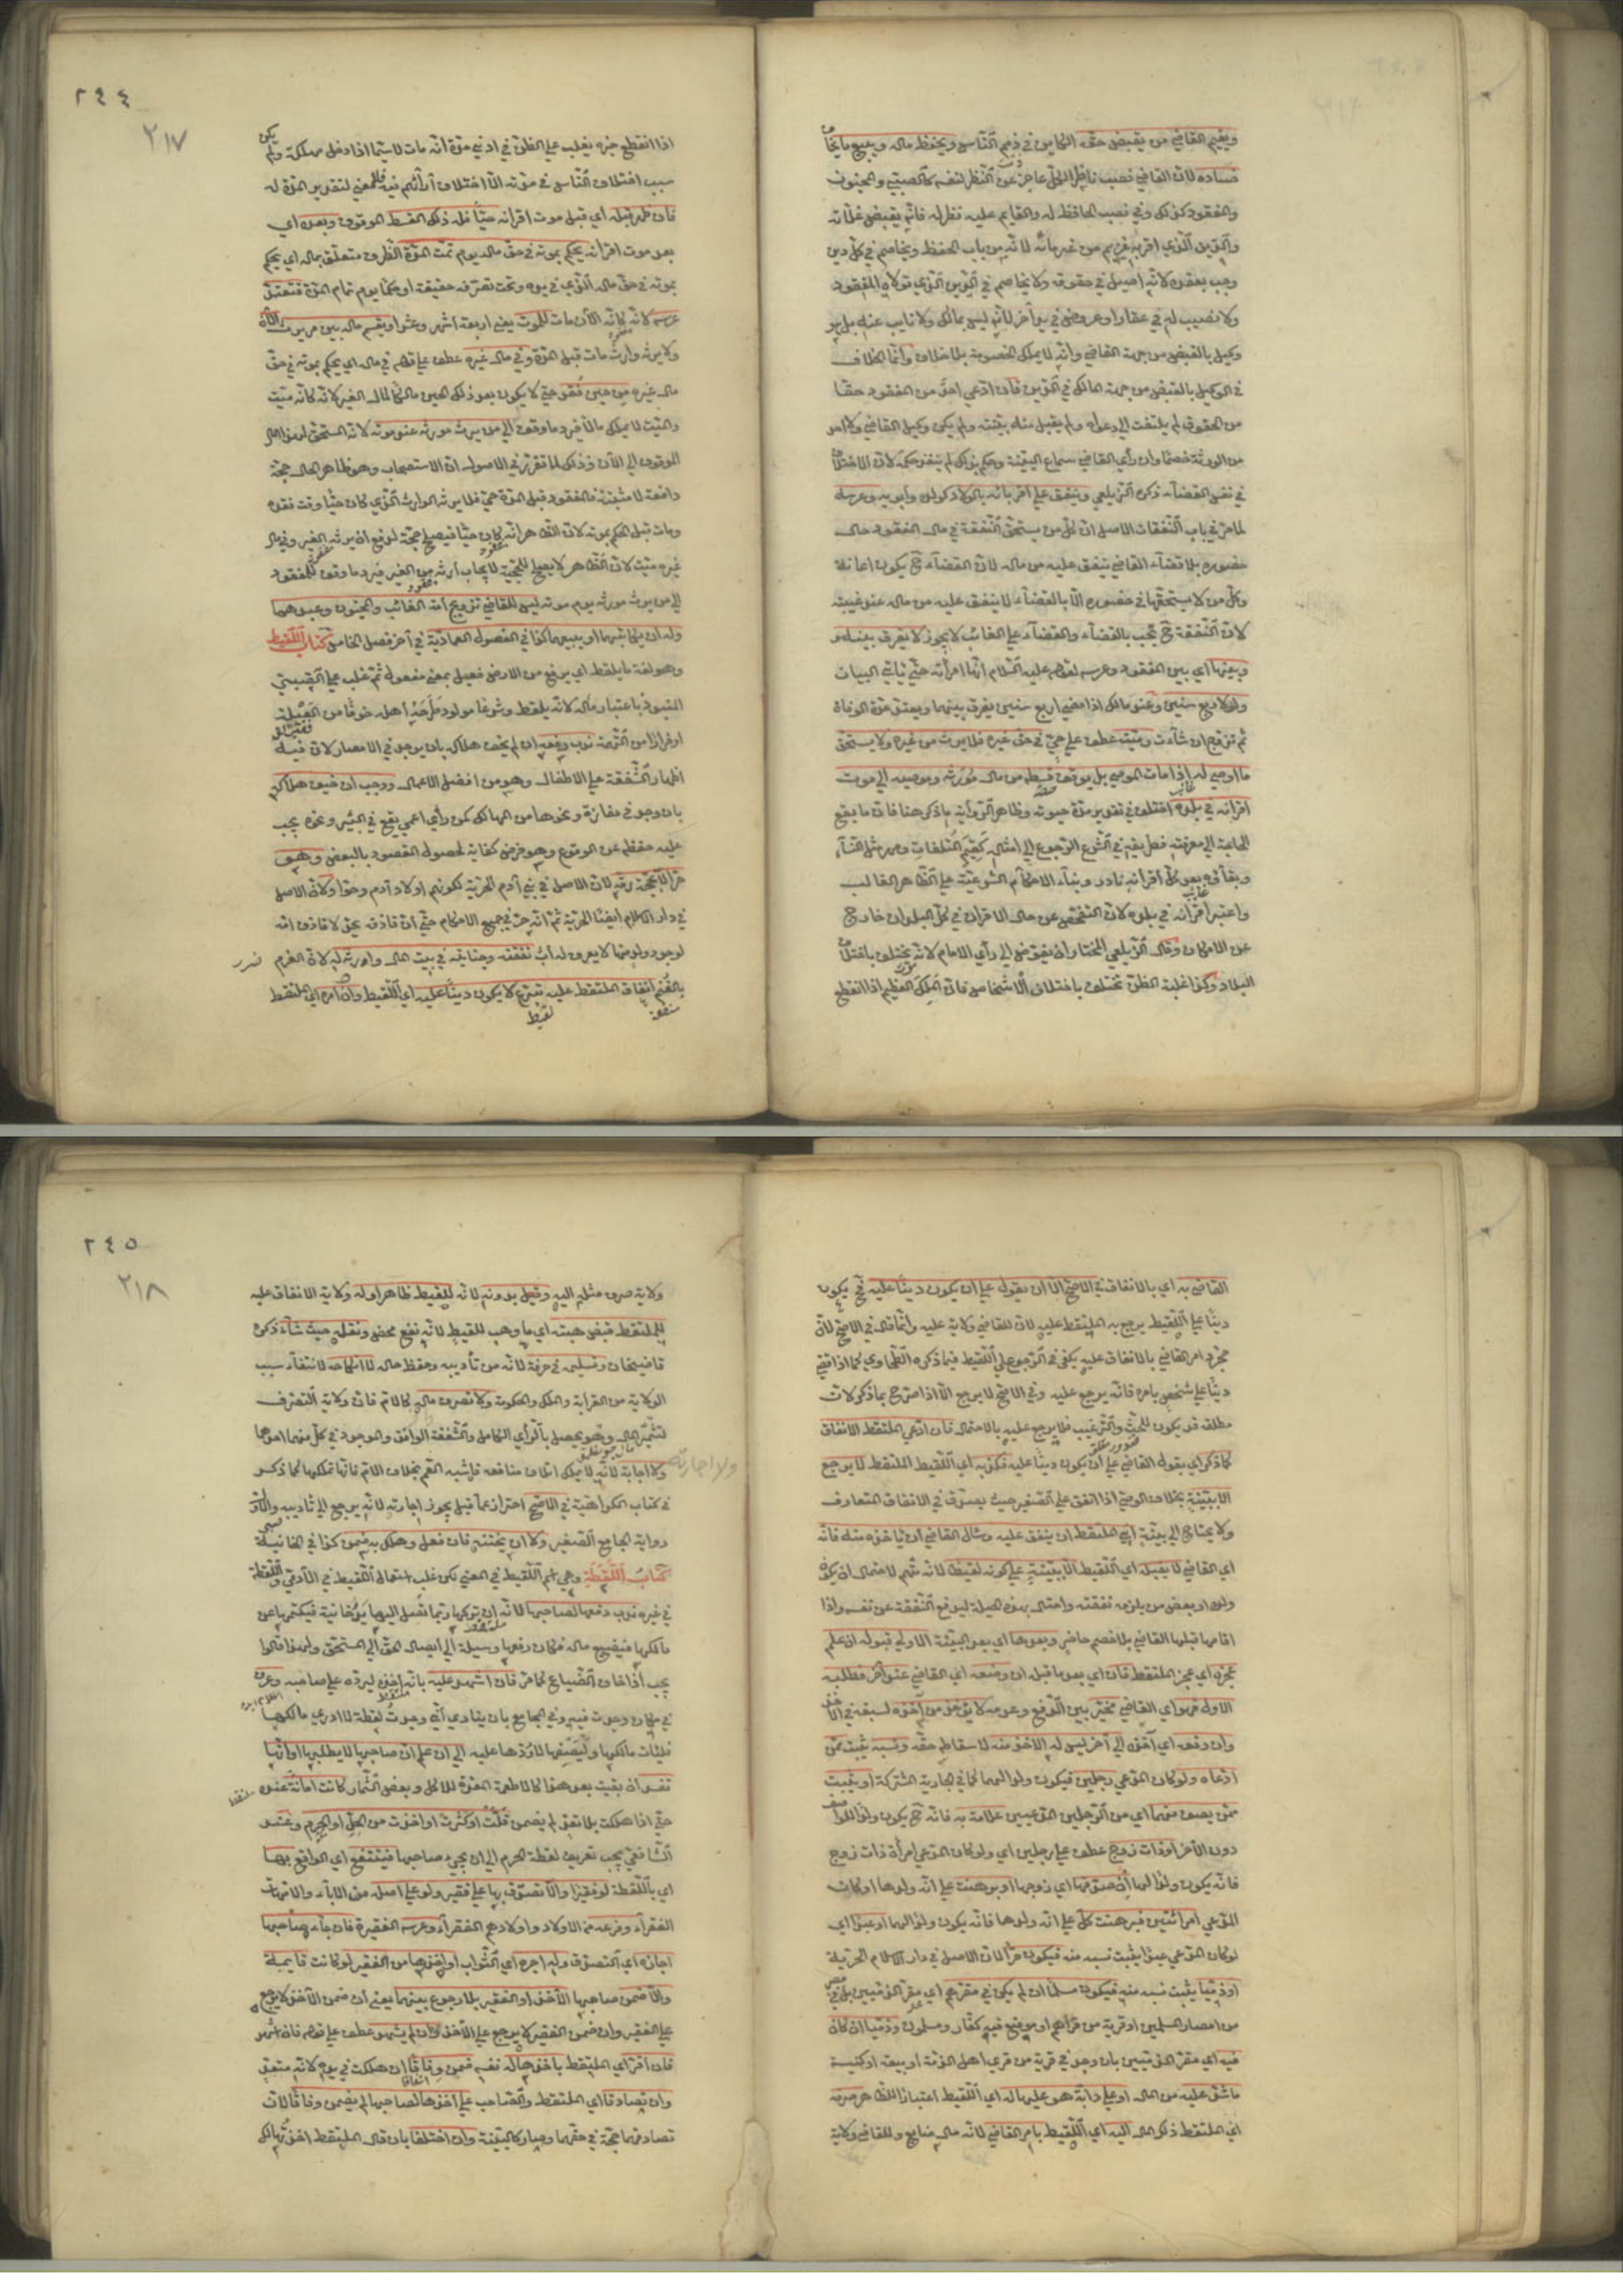 ويقيم القاضي من يقبض حقه الكاين في ذمم الناس ويحفظ ماله ويبيع ما يخاف
فساده لان القاضي نصب ناظرا لكل عاجز عن النظر لنفسه كالصبي والمجنون
والمفقود كذلك وفي نصب الحافظ له والقايم عليه نظر له فانه يقبض غلاته
والدين الذي اقر به غريم من غرمائه لانه من باب الحفظ ويخاصم في كل دين
وجب بعقده لانه اصيل في حقوقه ولا يخاصم في الدين الذي تولاه المفقود
ولا نصيب له في عقار او عروض في يد آخر لانه ليس بمالك ولا نايب عنه بل هو
وكيل بالقبض من جهة القاضي وانه لا يملك الخصومة بلا خلاف وانما الخلاف
في الوكيل بالقبض من جهة المالك في الدين فان ادعى احد من المفقود حقا
من الحقوق لم يلتفت الى دعواه ولم يقبل منه بينته ولم يكن وكيل القاضي ولا احد
من الورثة خصما وان رأى القاضي سماع البينة وحكم بذلك لم ينفذ حكمه لان الاختلاف
في نفس القضاء ذكره الزيلعي وينفق على اقربائه بالولاد كولده وابويه وعرسه
لما مر في باب النفقات الاصل ان كل من يستحق النفقة في مال المفقود حال
حضوره بلا قضاء القاضي ينفق عليه من ماله لان القضاء ح يكون اعانة
وكل من لا يستحقها في حضوره الا بالقضاء لا ينفق عليه من ماله عند غيبته
لان النفقة ح تجب بالقضاء والقضاء على الغائب لا يجوز لا يفرق بينه
وبينها اي بين المفقود وعرسه لقوله عليه السلام انها امرأته حتى يأتي البيان
ولو لاربع سنين وعند مالك اذا مضى اربع سنين يفرق بينهما ويعتد عدة الوفاة
ثم تزوج ان شاءت وميت عطف على حي في حق غيره فلا يرث من غيره ولا يستحق
ما اوصى له اذا مات الموصي بل يوقف قسطه من مال مورثه وموصيه الى موت
اقرانه في بلده اختلف في تقدير مدة حيوته وظاهر الرواية ما ذكر هنا فان ما يقع
الحاجة الى معرفته فطريقه في الشرع الرجوع الى امثاله كقيم المتلفات ومهر مثل النساء
وبقاؤه بعد كل اقرانه نادر وبناء الاحكام الشرعية على الظاهر الغالب
واعتبر اقرانه في بلده لان التفحص عن حال الاقران في كل البلدان خارج
عن الامكان وقال الزيلعي المختار ان يفوض الى رأي الامام لانه يختلف باختلاف
البلاد وكذا غلبة الظن تختلف باختلاف الاشخاص فان الملك العظيم اذا انقطع
٢٤٤
٢١٧
اذا انقطع خبره يغلب على الظن في ادنى مدة انه مات لا سيما اذا دخل مهلكة ولم يكن
سبب اختلاف الناس في مدته الا اختلاف آرائهم فيه فلا معنى لتقدير المدة له
فان ظهر قبله اي قبل موت اقرانه حيا فله ذلك القسط الموقوف وبعده اي
بعد موت اقرانه يحكم بموته في حق ماله يوم تمت المدة الظرف متعلق بماله اي يحكم
بموته في حق ماله الذي في يده وتحت تصرفه حقيقة او حكما يوم تمام المدة فتعتد
عرسه لانه كانه الآن مات للموت يعني اربعة اشهر وعشرا ويقسم ماله بين من يرثه الآن
ولا يرثه وارث مات قبل المدة وفي مال غيره عطف على قوله في ماله اي يحكم بموته في حق
مال غيره من حين فقد حتى لا يكون بعد ذلك الحين مالكا لمال الغير لانه كانه ميت
والميت لا يملك مالا فيرد ما وقف الى من يرث مورثه عند موته لانه المستحق لهذا المال
الموقوف الى الآن وذلك لما تقرر في الاصول ان الاستصحاب وهو ظاهر الحال حجة
دافعة لا مثبتة فالمفقود قبل المدة حي فلا يرثه الوارث الذي كان حيا وقت فقده
ومات قبل الحكم بموته لان الظاهر انه كان حيا فيصلح حجة لدفع ان يرثه الغير وفي مال
غيره ميت لان الظاهر لا يصلح للحجية لايجاب ارثه من الغير فيرد ما وقف للمفقود
الى من يرث مورثه يوم موته ليس للقاضي تزويج امة الغائب والمجنون وعبدهما
وله ان يكاتبهما او يبيعهما كذا في الفصول العمادية في آخر فصل الخامس كتاب اللقيط
وهو لغة ما يلقط اي يرفع من الارض فعيل بمعنى مفعول ثم غلب على الصبي
المنبوذ باعتبار مآله لانه يلقط وشرعا مولود طرحه اهله خوفا من العيلة
او فرارا من التهمة ندب رفعه ان لم يخف هلاكه بان يوجد في الامصار لان فيه
اظهار الشفقة على الاطفال وهو من افضل الاعمال ووجب ان خيف هلاكه
بان وجد في مفازة ونحوها من المهالك كمن رأى اعمى يقع في البئر ونحوه يجب
عليه حفظه عن الوقوع وهو فرض كفاية لحصول المقصود بالبعض وهو
حر الا بحجة رقه لان الاصل في بني آدم الحرية لكونهم اولاد آدم وحواء ولان الاصل
في دار الاسلام ايضا الحرية ثم انه حر في جميع الاحكام حتى ان قاذفه يحد لا قاذف امه
لوجود ولد منها لا يعرف له اب نفقته وجنايته في بيت المال وارثه له لان الغرم
بالغنم انفاق الملتقط عليه تبرع لا يكون دينا عليه اي اللقيط وان امره اي الملتقط
القاضي به اي بالانفاق في الاصح الا ان يقول على ان يكون دينا عليه فح يكون
دينا على اللقيط يرجع به الملتقط عليه لان للقاضي ولاية عليه وانما قال في الاصح لان
مجرد امر القاضي بالانفاق عليه يكفي في الرجوع على اللقيط فيما ذكره الطحاوي كما اذا قضى
دينا على شخص بامره فانه يرجع عليه وفي الاصح لا يرجع الا اذا صرح بما ذكر لان
مطلقه قد يكون للحث والترغيب فلا يرجع عليه بالاحتمال فان ادعى الملتقط الانفاق
كما ذكر اي بقول القاضي على ان يكون دينا عليه فكذبه اي اللقيط الملتقط لا يرجع
الا ببينة بخلاف الوصي اذا انفق على الصغير حيث يصدق في الانفاق المتعارف
ولا يحتاج الى بينة ابى الملتقط ان ينفق عليه وسأل القاضي ان يأخذه منه فانه
اي القاضي لا يقبله اي اللقيط الا ببينة على كونه لقيطا لانه متهم لاحتمال ان يكون
ولده او بعض من يلزمه نفقته واحتال بهذه الحيلة ليدفع النفقة عن نفسه واذا
اقامها قبلها القاضي بلا خصم حاضر وبعدها اي بعد البينة الاولى قبوله ان علم
عجزه اي عجز الملتقط فان اي بعدما قبل ان وضعه اي القاضي عند آخر فطلبه
الاول فهو اي القاضي مخير بين الدفع وعدمه لا يؤخذ من آخذه لسبقه في الاخذ
وان دفعه اي آخذه الى آخر ليس له الاخذ منه لاسقاطه حقه ونسبه يثبت ممن
ادعاه ولو كان المدعي رجلين فيكون ولدا لهما كما في الجارية المشتركة او يثبت
ممن يصف منهما اي من الرجلين المدعيين علامة به فانه ح يكون ولدا للواصف
دون الآخر او ذات زوج عطف على رجلين اي ولو كان المدعي امرأة ذات زوج
فانه يكون ولدا لها ان صدقها اي زوجها او برهنت على انه ولدها او كان
المدعي امرأتين فبرهنت كل على انه ولدها فانه يكون ولدا لهما او عبدا اي
لو كان المدعي عبدا يثبت نسبه منه فيكون حرا لان الاصل في دار الاسلام الحرية
او ذميا يثبت نسبه منه فيكون مسلما ان لم يكن في مقرهم اي مقر الذميين بل في مصر
من امصار المسلمين او قرية من قراهم او موضع فيه كفار ومسلمون وذميا ان كان
فيه اي مقر الذميين بان وجد في قرية من قرى اهل الذمة او بيعة او كنيسة
ما شد عليه من المال او على دابة هو عليها له اي اللقيط اعتبارا للظاهر صرفه
اي الملتقط ذلك المال اليه اي اللقيط بامر القاضي لانه مال ضايع وللقاضي ولاية
٢٤٥
٢١٨
ولاية صرف مثله اليه وقيل بدونه لانه للقيط ظاهرا وله ولاية الانفاق عليه
للملتقط قبض هبته اي ما وهب للقيط لانه نفع محض ونقله حيث شاء ذكره
قاضيخان وتسليمه في حرفة لانه من تأديبه وحفظ حاله لا انكاحه لانتفاء سبب
الولاية من القرابة والملك والحكومة ولا تصرف ماله كالام فان ولاية التصرف
لتثمير المال وهو يحصل بالرأي الكامل والشفقة الوافرة والموجود في كل منهما احدهما
ولا اجارة لانه لا يملك اتلاف منافعه فاشبه العم بخلاف الام فانها تملكها كما ذكر
في كتاب الكراهية في الاصح احتراز عما قيل يجوز اجارته لانه يرجع الى تأديبه والاول
رواية الجامع الصغير ولا ان يختنه فان فعل وهلك به ضمن كذا في الخانية
كتاب اللقطة وهي اسم اللقيط في المعنى لكن غلب استعمال اللقيط في الآدمي واللقطة
في غيره ندب رفعها لصاحبها لانه ان يتركها ربما تصل اليها يد خائنة فيكتمها عن
مالكها فيضيع ماله فكان رفعها وسيلة الى ايصال الحق الى المستحق ولهذا قالوا
يجب اذا خاف الضياع كما مر فان اشهد عليه بانه اخذه ليرده على صاحبه وعرف
في مكان وجدت فيه وفي المجامع بان ينادي اني وجدت لقطة لا ادري مالكها
فليأت مالكها وليصفها لاردها عليه الى ان علم ان صاحبها لا يطلبها او انها
تفسد ان بقيت بعد هذا كالاطعمة المعدة للاكل وبعض الثمار كانت امانة عنده
حتى اذا هلكت بلا تعد لم يضمن قلت او كثرت او اخذت من الحل او الحرم وعند
الشافعي يجب تعريف لقطة الحرم الى ان يجيء صاحبها فينتفع اي الرافع بها
اي باللقطة لو فقيرا والا تصدق بها على فقير ولو على اصله من الآباء والامهات
الفقراء وفرعه من الاولاد واولادهم الفقراء وعرسه الفقيرة فان جاء صاحبها
اجازه اي التصدق وله اجره اي الثواب او اخذها من الفقير لو كانت قايمة
والا ضمن صاحبها الآخذ او الفقير بلا رجوع بينهما يعني ان ضمن الآخذ لا يرجع
على الفقير وان ضمن الفقير لا يرجع على الآخذ وان لم يشهد عطف على قوله فان اشهد
فان اقر اي الملتقط باخذها له نفسه ضمن وفاقا ان هلكت في يده لانه متعد
وان تصادقا اي الملتقط والصاحب على اخذها لصاحبها لم يضمن وفاقا لان
تصادقهما حجة في حقهما وصار كالبينة وان اختلفا بان قال الملتقط اخذتها لك